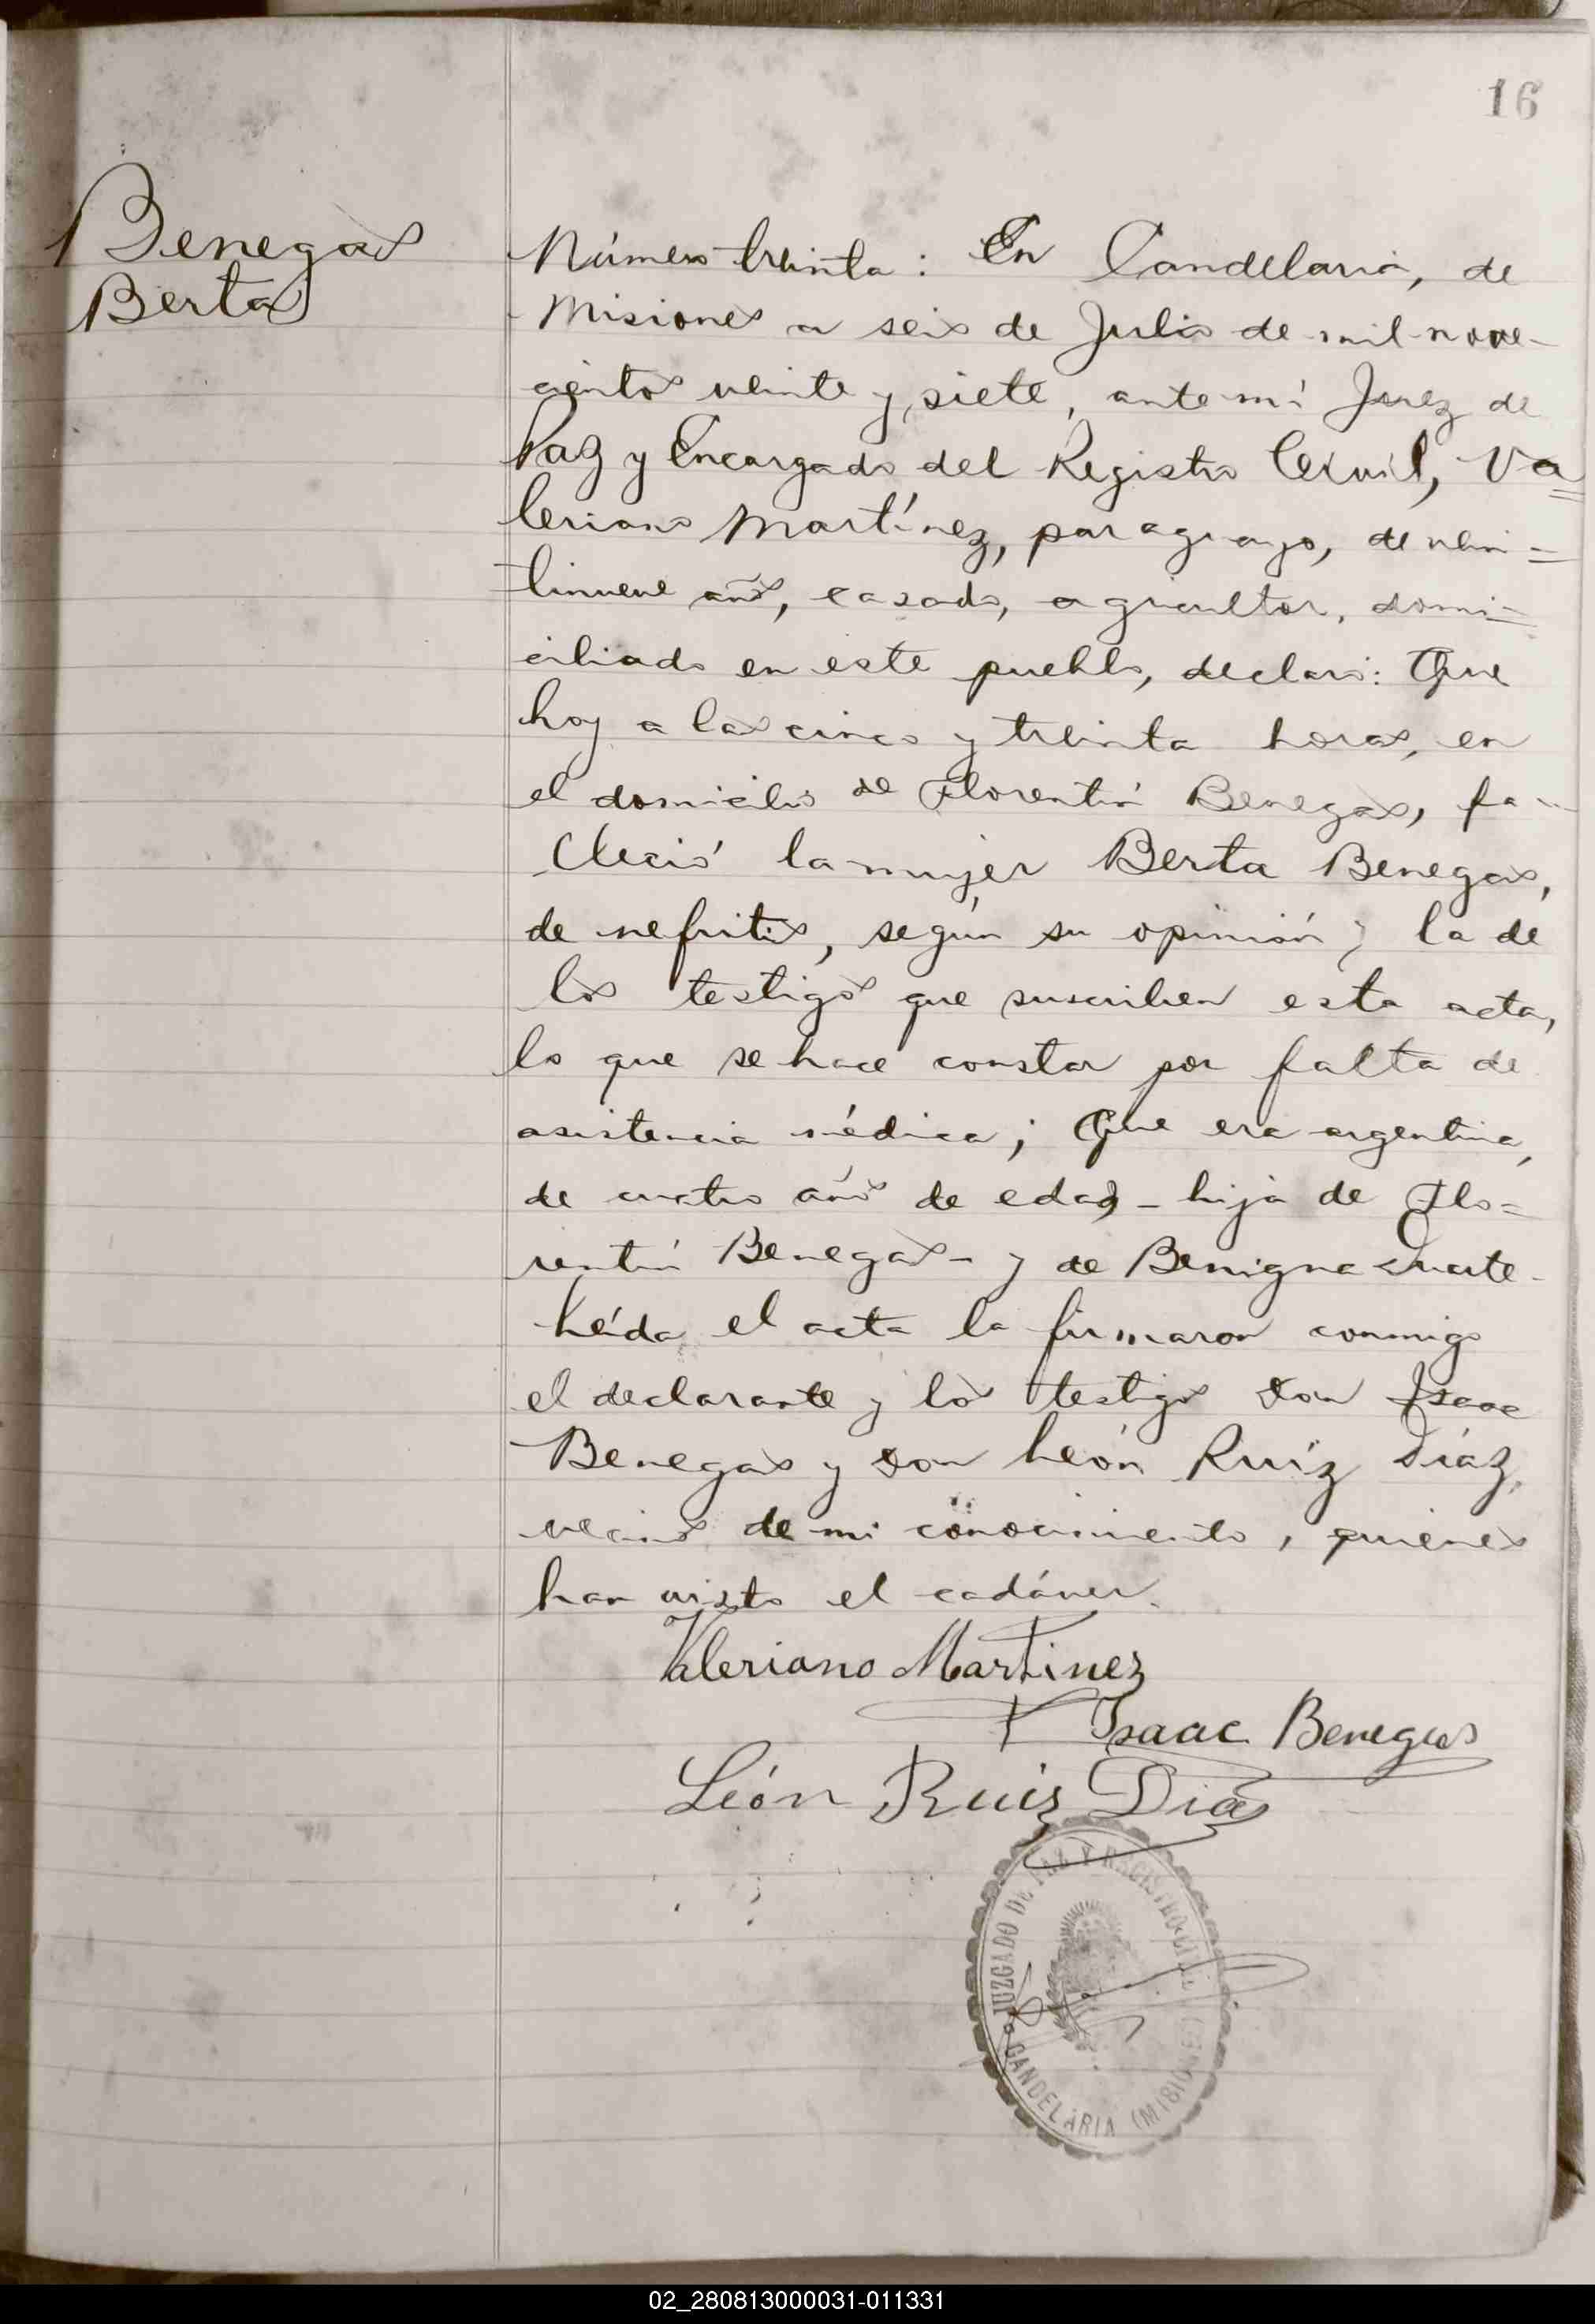 16
Benegas
Berta
Número treinta: En Candelaria, de
Misiones a seis de Julio de mil nove-
cientos veinte y siete, ante mí Juez de
Paz y Encargado del Registro Civil, Va=
leriano Martínez, paraguayo, de vein=
tinueve años, casado, agricultor, domi=
ciliado en este pueblo, declaró: Que
hoy a las cinco y treinta horas, en
el domicilio de Florentín Benegas, fa-
lleció la mujer Berta Benegas,
de nefritis, según su opinión y la de
los testigos que suscriben esta acta,
lo que se hace constar por falta de
asistencia médica; Que era argentina,
de cuatro años de edad - hija de Flo=
rentín Benegas - y de Benigna Duarte -
Leída el acta la firmaron conmigo
el declarante y los testigos Don Isaac
Benegas y Don León Ruíz Díaz,
vecinos de mi conocimiento, quienes
han visto el cadáver.
Valeriano Martinez
Isaac Benegas
León Ruiz Dias
JUZGADO DE PAZ Y REGISTRO CIVIL
CANDELARIA (MISIONES)
02_280813000031-011331